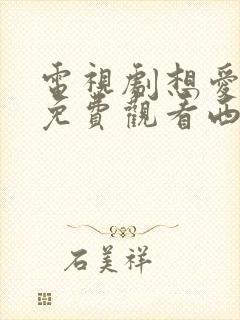 電視劇想愛
免費觀看西
石美祥